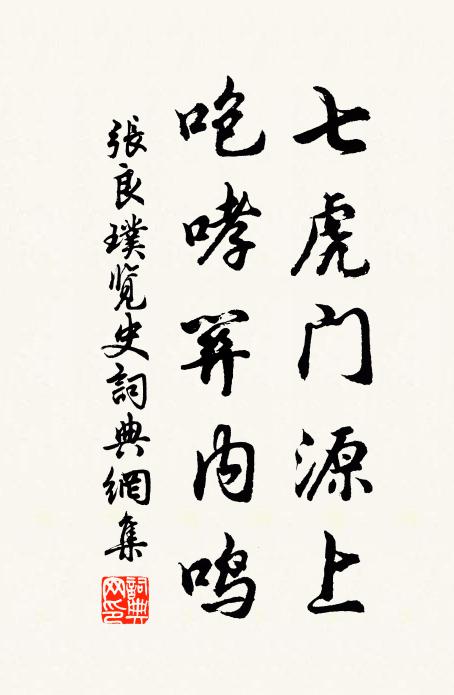 七虎门源上
咆哮關内鸣
張良璞览史詞典網集
詞典网印